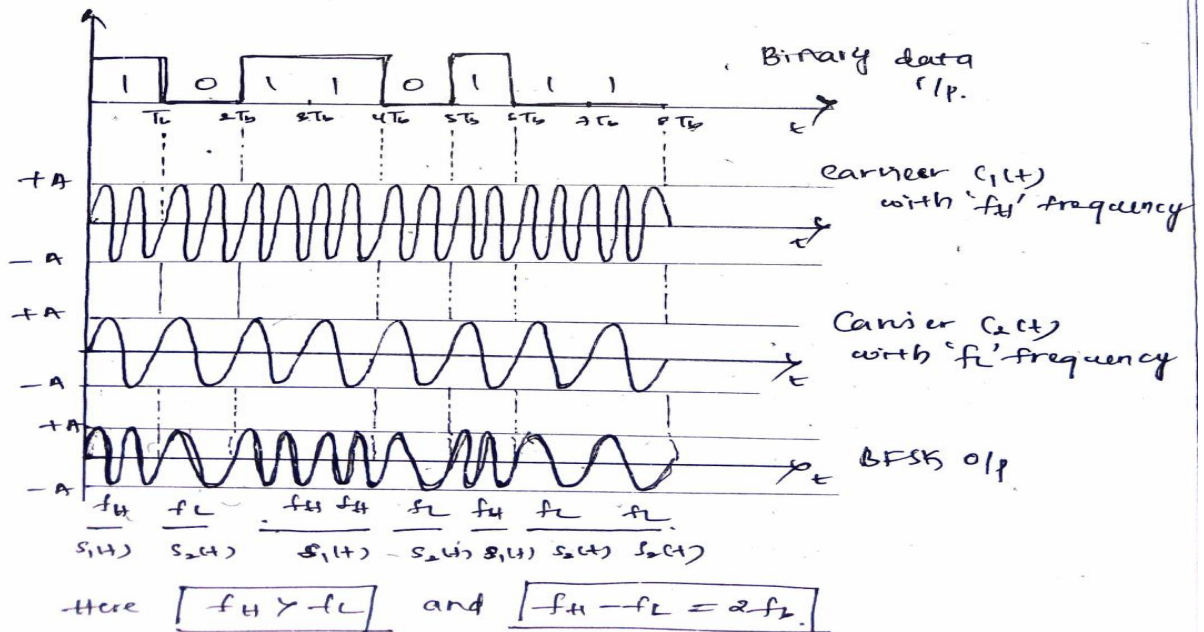 1 0 1 1 0 1 1 1
Binary data
i/p.
Tb 2Tb 3Tb 4Tb 5Tb 6Tb 7Tb 8Tb t
+A
carrier C1(t)
with 'fH' frequency
t
-A
+A
Carrier C2(t)
with 'fL' frequency
t
-A
+A
BFSK o/p
t
-A
fH fL fH fH fL fH fL fL
S1(t) S2(t) S1(t) S2(t) S1(t) S2(t) S2(t)
Here fH > fL and fH - fL = 2fb.